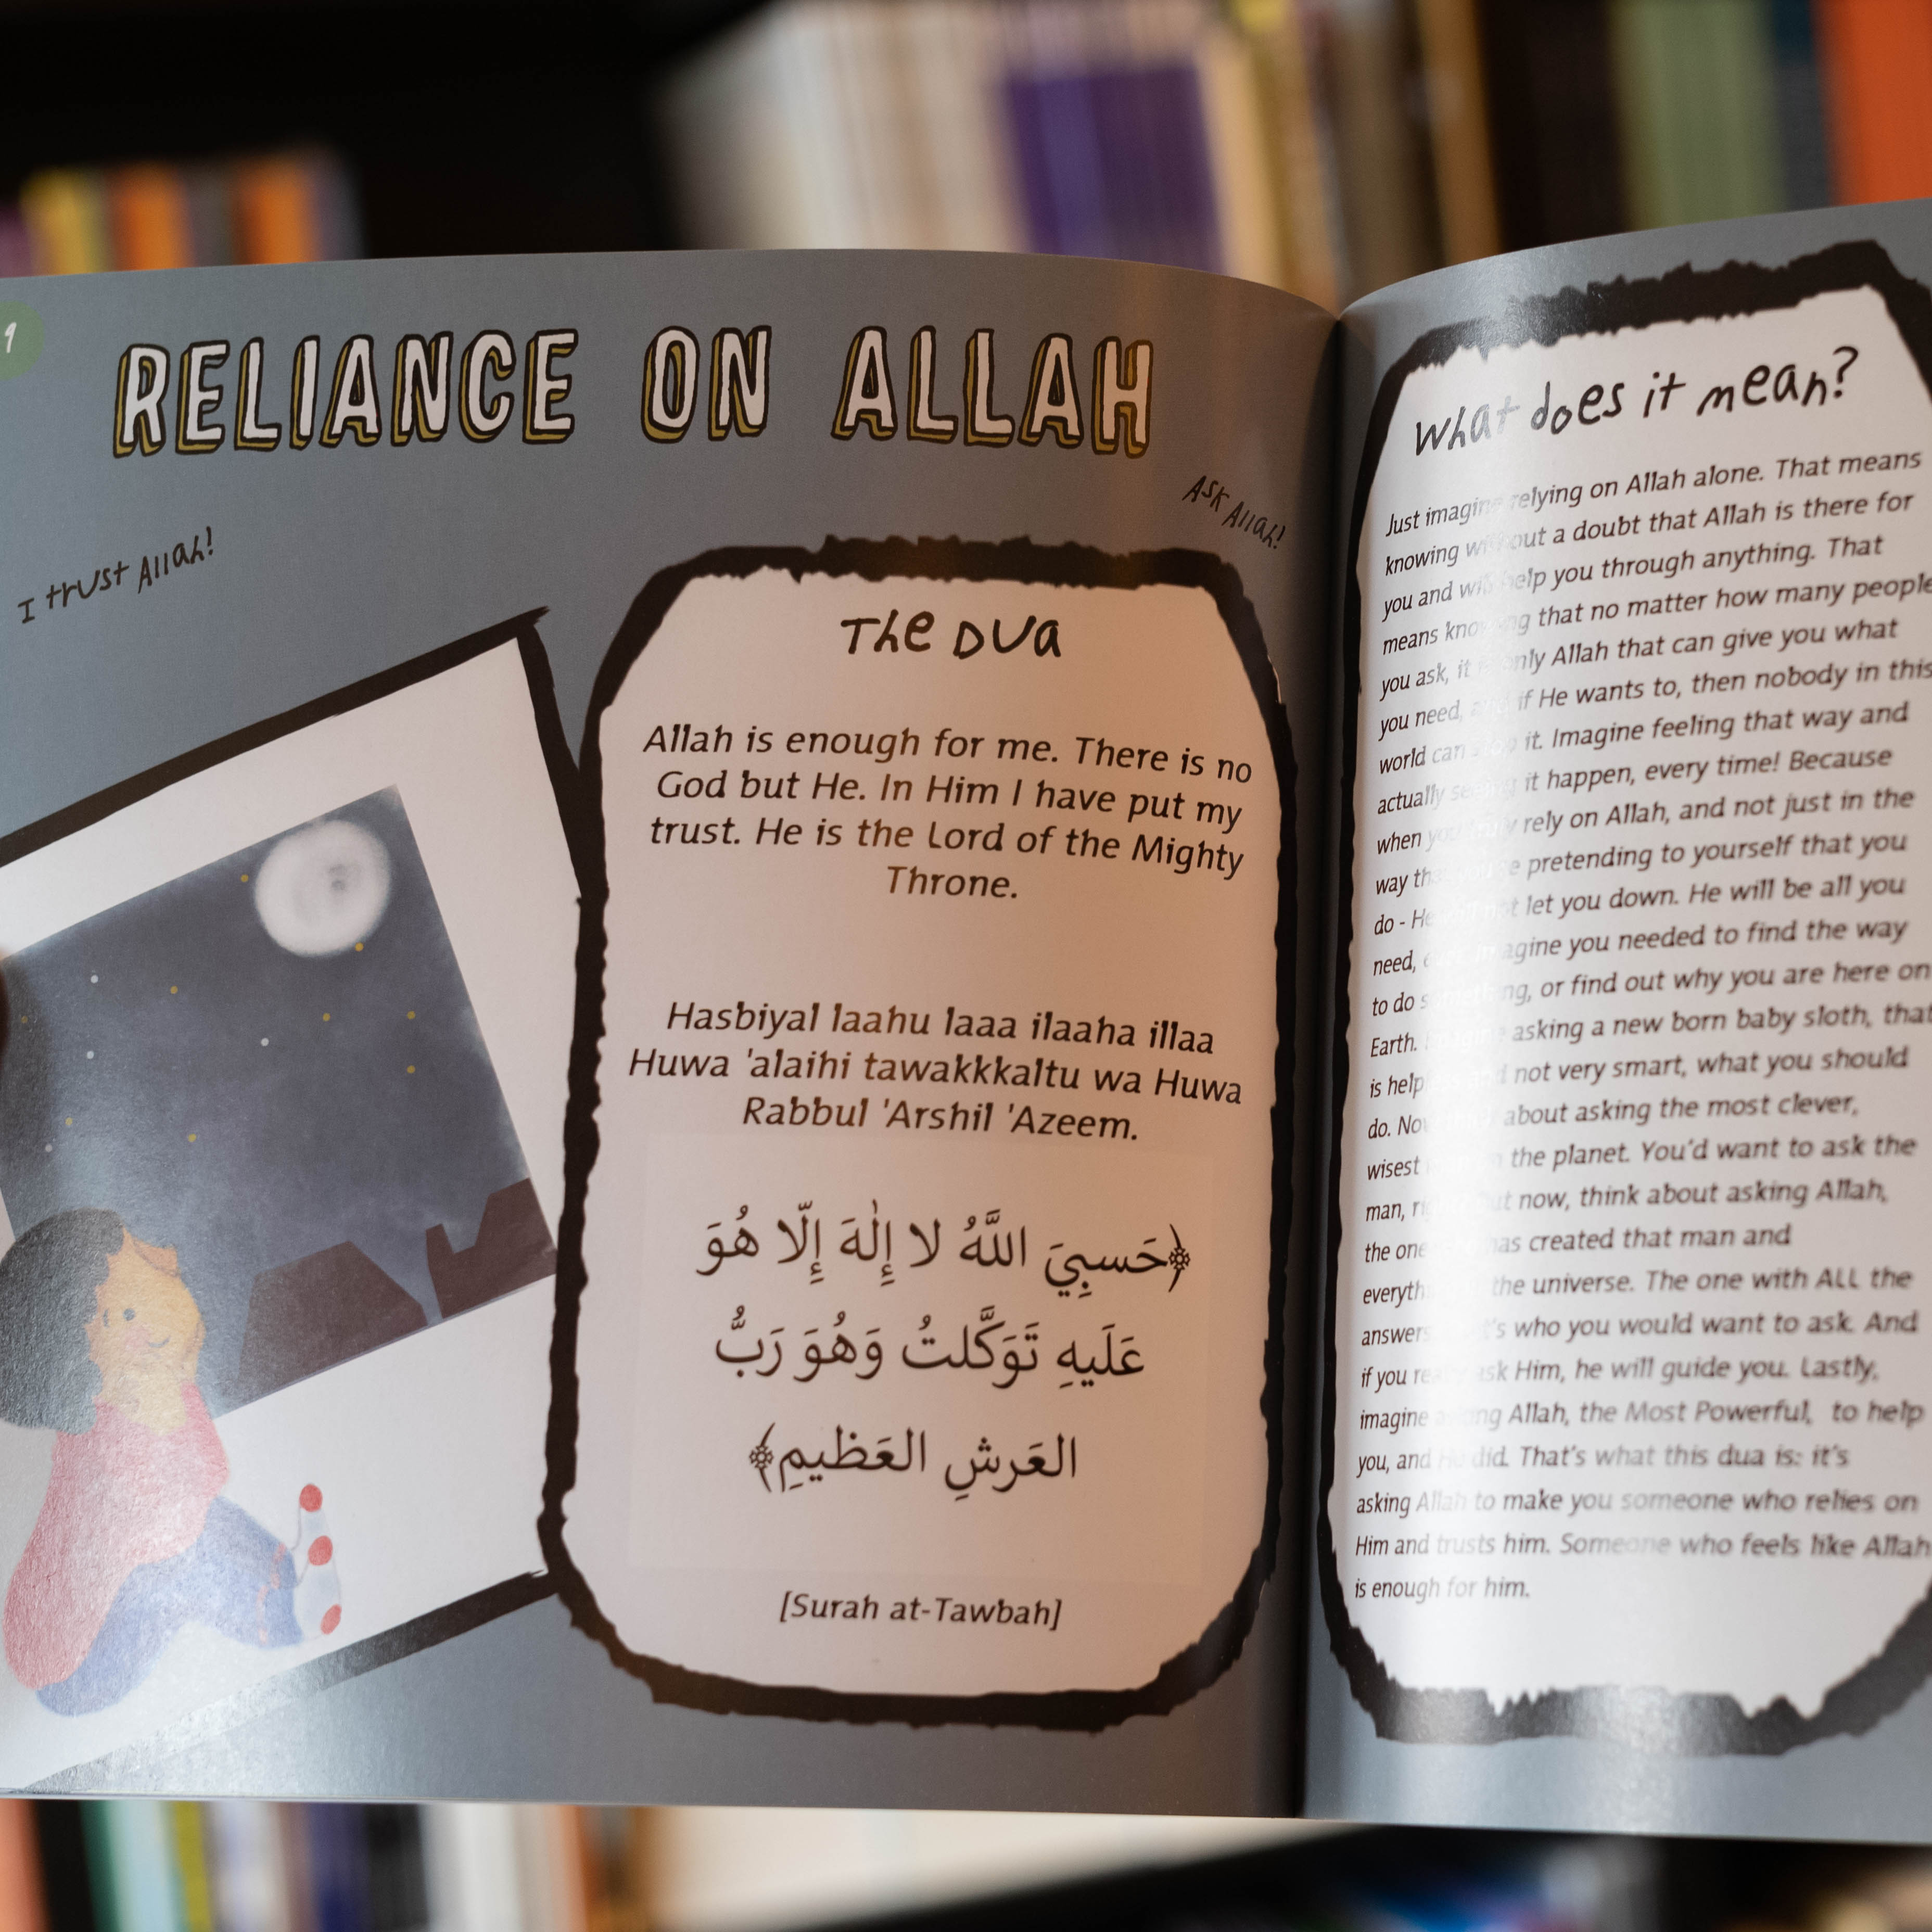 9
RELIANCE ON ALLAH
I trust Allah!
Ask Allah!
The Dua
Allah is enough for me. There is no
God but He. In Him I have put my
trust. He is the Lord of the Mighty
Throne.
Hasbiyal laahu laaa ilaaha illaa
Huwa 'alaihi tawakkkaltu wa Huwa
Rabbul 'Arshil 'Azeem.
﴿حَسبِيَ اللَّهُ لا إِلٰهَ إِلّا هُوَ
عَلَيهِ تَوَكَّلتُ وَهُوَ رَبُّ
العَرشِ العَظيمِ﴾
[Surah at-Tawbah]
What does it mean?
Just imagine relying on Allah alone. That means
knowing without a doubt that Allah is there for
you and will help you through anything. That
means knowing that no matter how many people
you ask, it is only Allah that can give you what
you need, if He wants to, then nobody in this
world can stop it. Imagine feeling that way and
actually seeing it happen, every time! Because
when you truly rely on Allah, and not just in the
way pretending to yourself that you
do - He will not let you down. He will be all you
need, imagine you needed to find the way
to do something, or find out why you are here on
Earth. Imagine asking a new born baby sloth, that
is not very smart, what you should
do. Now about asking the most clever,
wisest the planet. You'd want to ask the
man, now, think about asking Allah,
the one has created that man and
the universe. The one with ALL the
who you would want to ask. And
if you ask Him, he will guide you. Lastly,
imagine asking Allah, the Most Powerful, to help
you, and He did. That's what this dua is: it's
asking Allah to make you someone who relies on
Him and trusts him. Someone who feels like Allah
is enough for him.